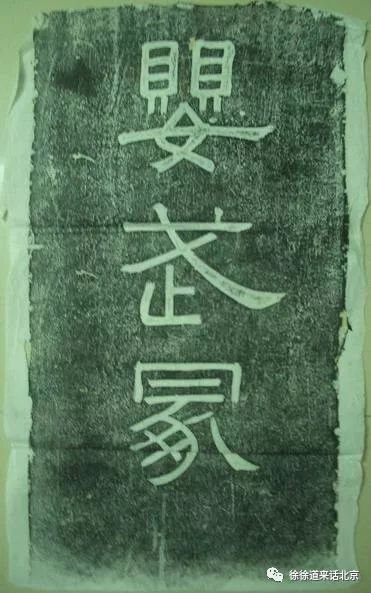 嬰武冢
徐徐道来话北京